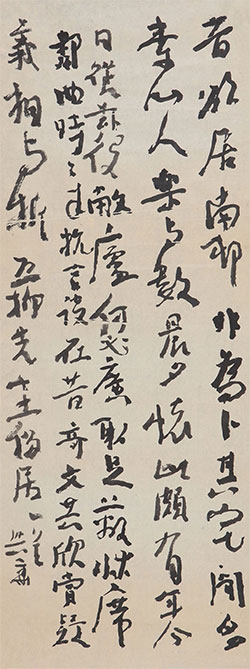 昔欲居南邨非為卜其宅聞多
素心人樂与數晨夕懷此頗有年今
日從茲役敝廬何必廣取足蔽牀席
鄰曲時々來抗言談在昔奇文共欣賞疑
義相与析 五柳先生移居